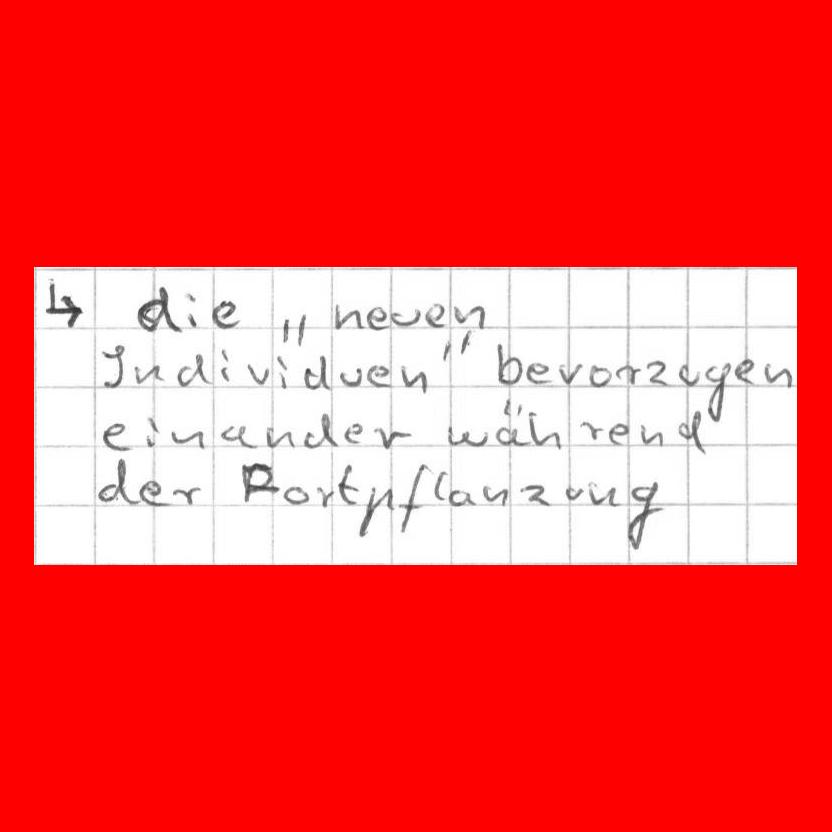 ↳ die „neuen
Individuen" bevorzugen
einander während
der Fortpflanzung